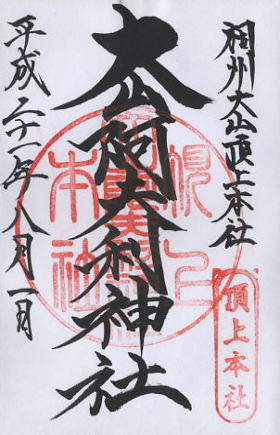 相州大山頂上本社
大山阿夫利神社
平成二十一年八月一日
頂上本社